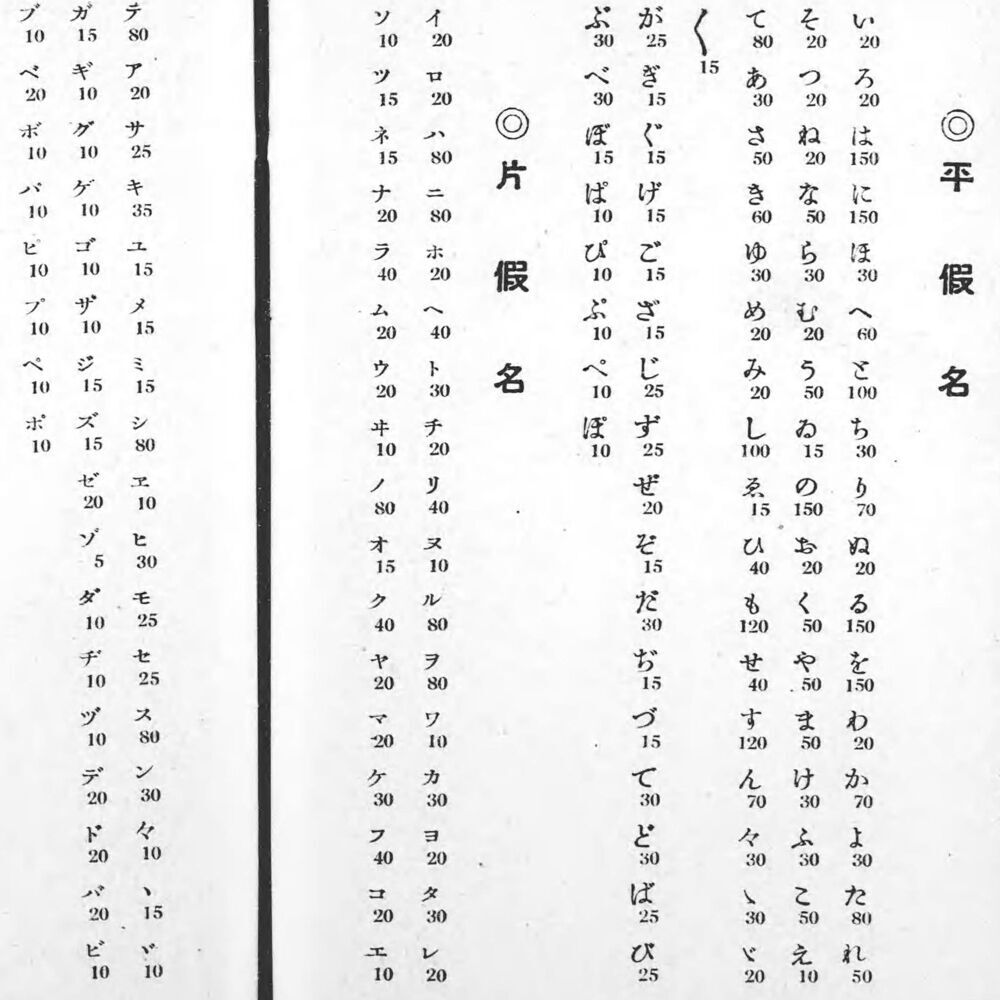 ◎平假名
い20 ろ20 は150 に150 ほ30 へ60 と100 ち30 り70 ぬ20 る150 を150 わ20 か70 よ30 た80 れ50
そ20 つ20 ね20 な50 ら30 む20 う50 ゐ15 の150 お20 く50 や50 ま50 け30 ふ30 こ50 え10
て80 あ30 さ50 き60 ゆ30 め20 み20 し100 ゑ15 ひ40 も120 せ40 す120 ん70 々30 ゝ30 ゞ20
〱15
が25 ぎ15 ぐ15 げ15 ご15 ざ15 じ25 ず25 ぜ20 ぞ15 だ30 ぢ15 づ15 で30 ど30 ば25 び25
ぶ30 べ30 ぼ15 ぱ10 ぴ10 ぷ10 ぺ10 ぽ10
◎片假名
イ20 ロ20 ハ80 ニ80 ホ20 ヘ40 ト30 チ20 リ40 ヌ10 ル80 ヲ80 ワ10 カ30 ヨ20 タ30 レ20
ソ10 ツ15 ネ15 ナ20 ラ40 ム20 ウ20 ヰ10 ノ80 オ15 ク40 ヤ20 マ20 ケ30 フ40 コ20 エ10
テ80 ア20 サ25 キ35 ユ15 メ15 ミ15 シ80 ヱ10 ヒ30 モ25 セ25 ス80 ン30 々10 ヽ15 ヾ10
ガ15 ギ10 グ10 ゲ10 ゴ10 ザ10 ジ15 ズ15 ゼ20 ゾ5 ダ10 ヂ10 ヅ10 デ20 ド20 バ20 ビ10
ブ10 ベ20 ボ10 パ10 ピ10 プ10 ペ10 ポ10